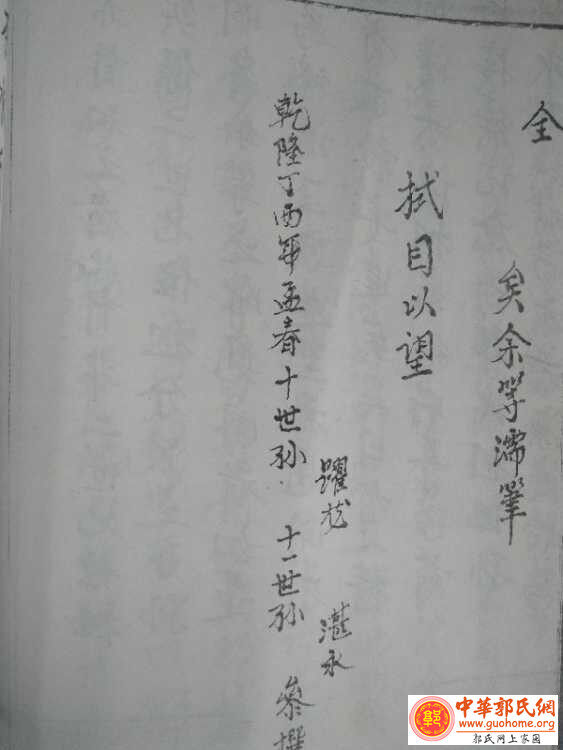 全
矣余等濡筆
拭目以望
乾隆丁酉年孟春十世孫
躍龙
十一世孫
永
參撰
中華郭氏網
www.guohome.org
郭氏网上家园